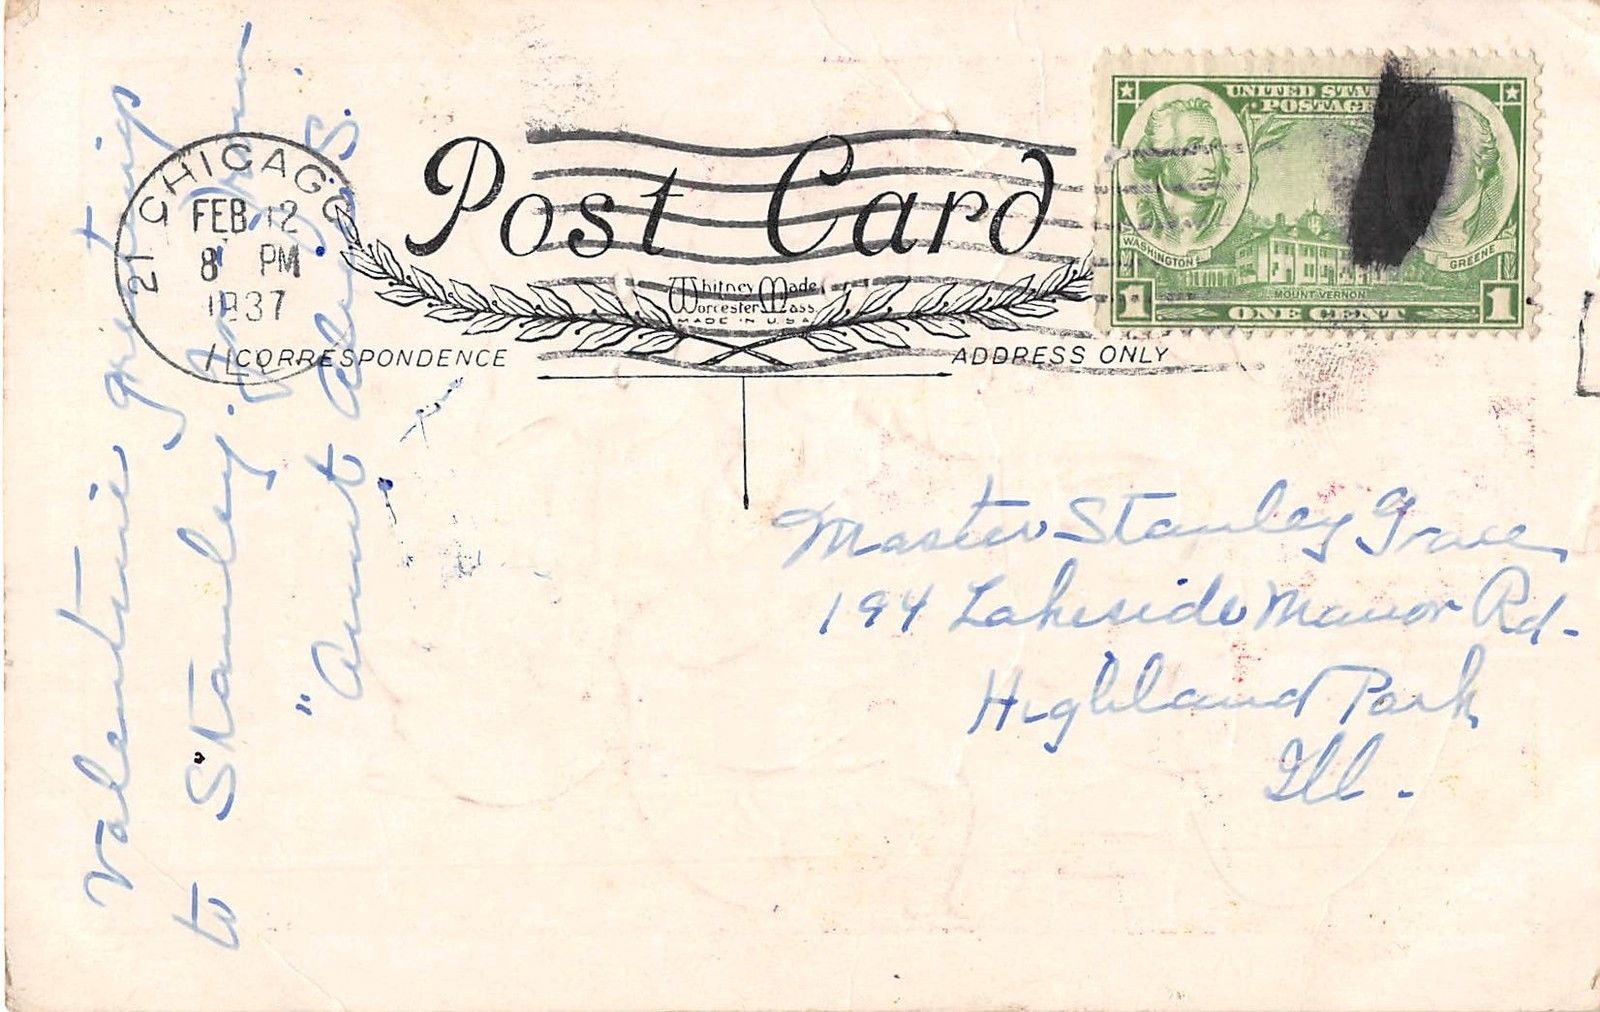 21 CHICAGO
FEB 12
8 PM
1937
Post Card
Whitney Made
Worcester Mass.
MADE IN U.S.A.
CORRESPONDENCE
ADDRESS ONLY
UNITED STA
POSTAGE
WASHINGTON
GREENE
MOUNT VERNON
1 ONE CENT 1
Valentine greetings
to Stanley. from
"Aunt
Master Stanley Grace
194 Lakeside Manor Rd-
Highland Park
Ill.